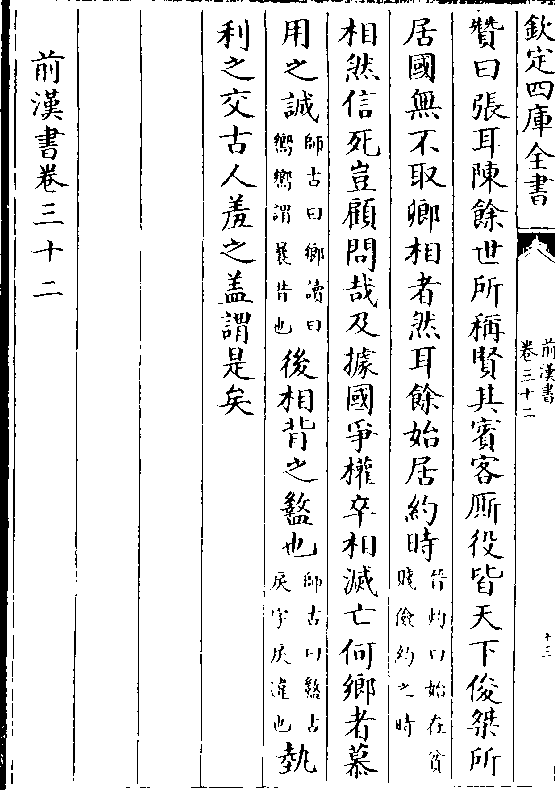 欽定四庫全書
前漢書
卷三十二
十三
贊曰張耳陳餘世所稱賢其賓客厮役皆天下俊桀所
居國無不取卿相者然耳餘始居約時
晉灼曰始在貧
賤儉約之時
相然信死豈顧問哉及據國爭權卒相滅亡何鄉者慕
用之誠
師古曰鄉讀曰
嚮嚮謂曩昔也
後相背之盭也
師古曰盭古
戾字戾違也
埶
利之交古人羞之盖謂是矣
前漢書卷三十二